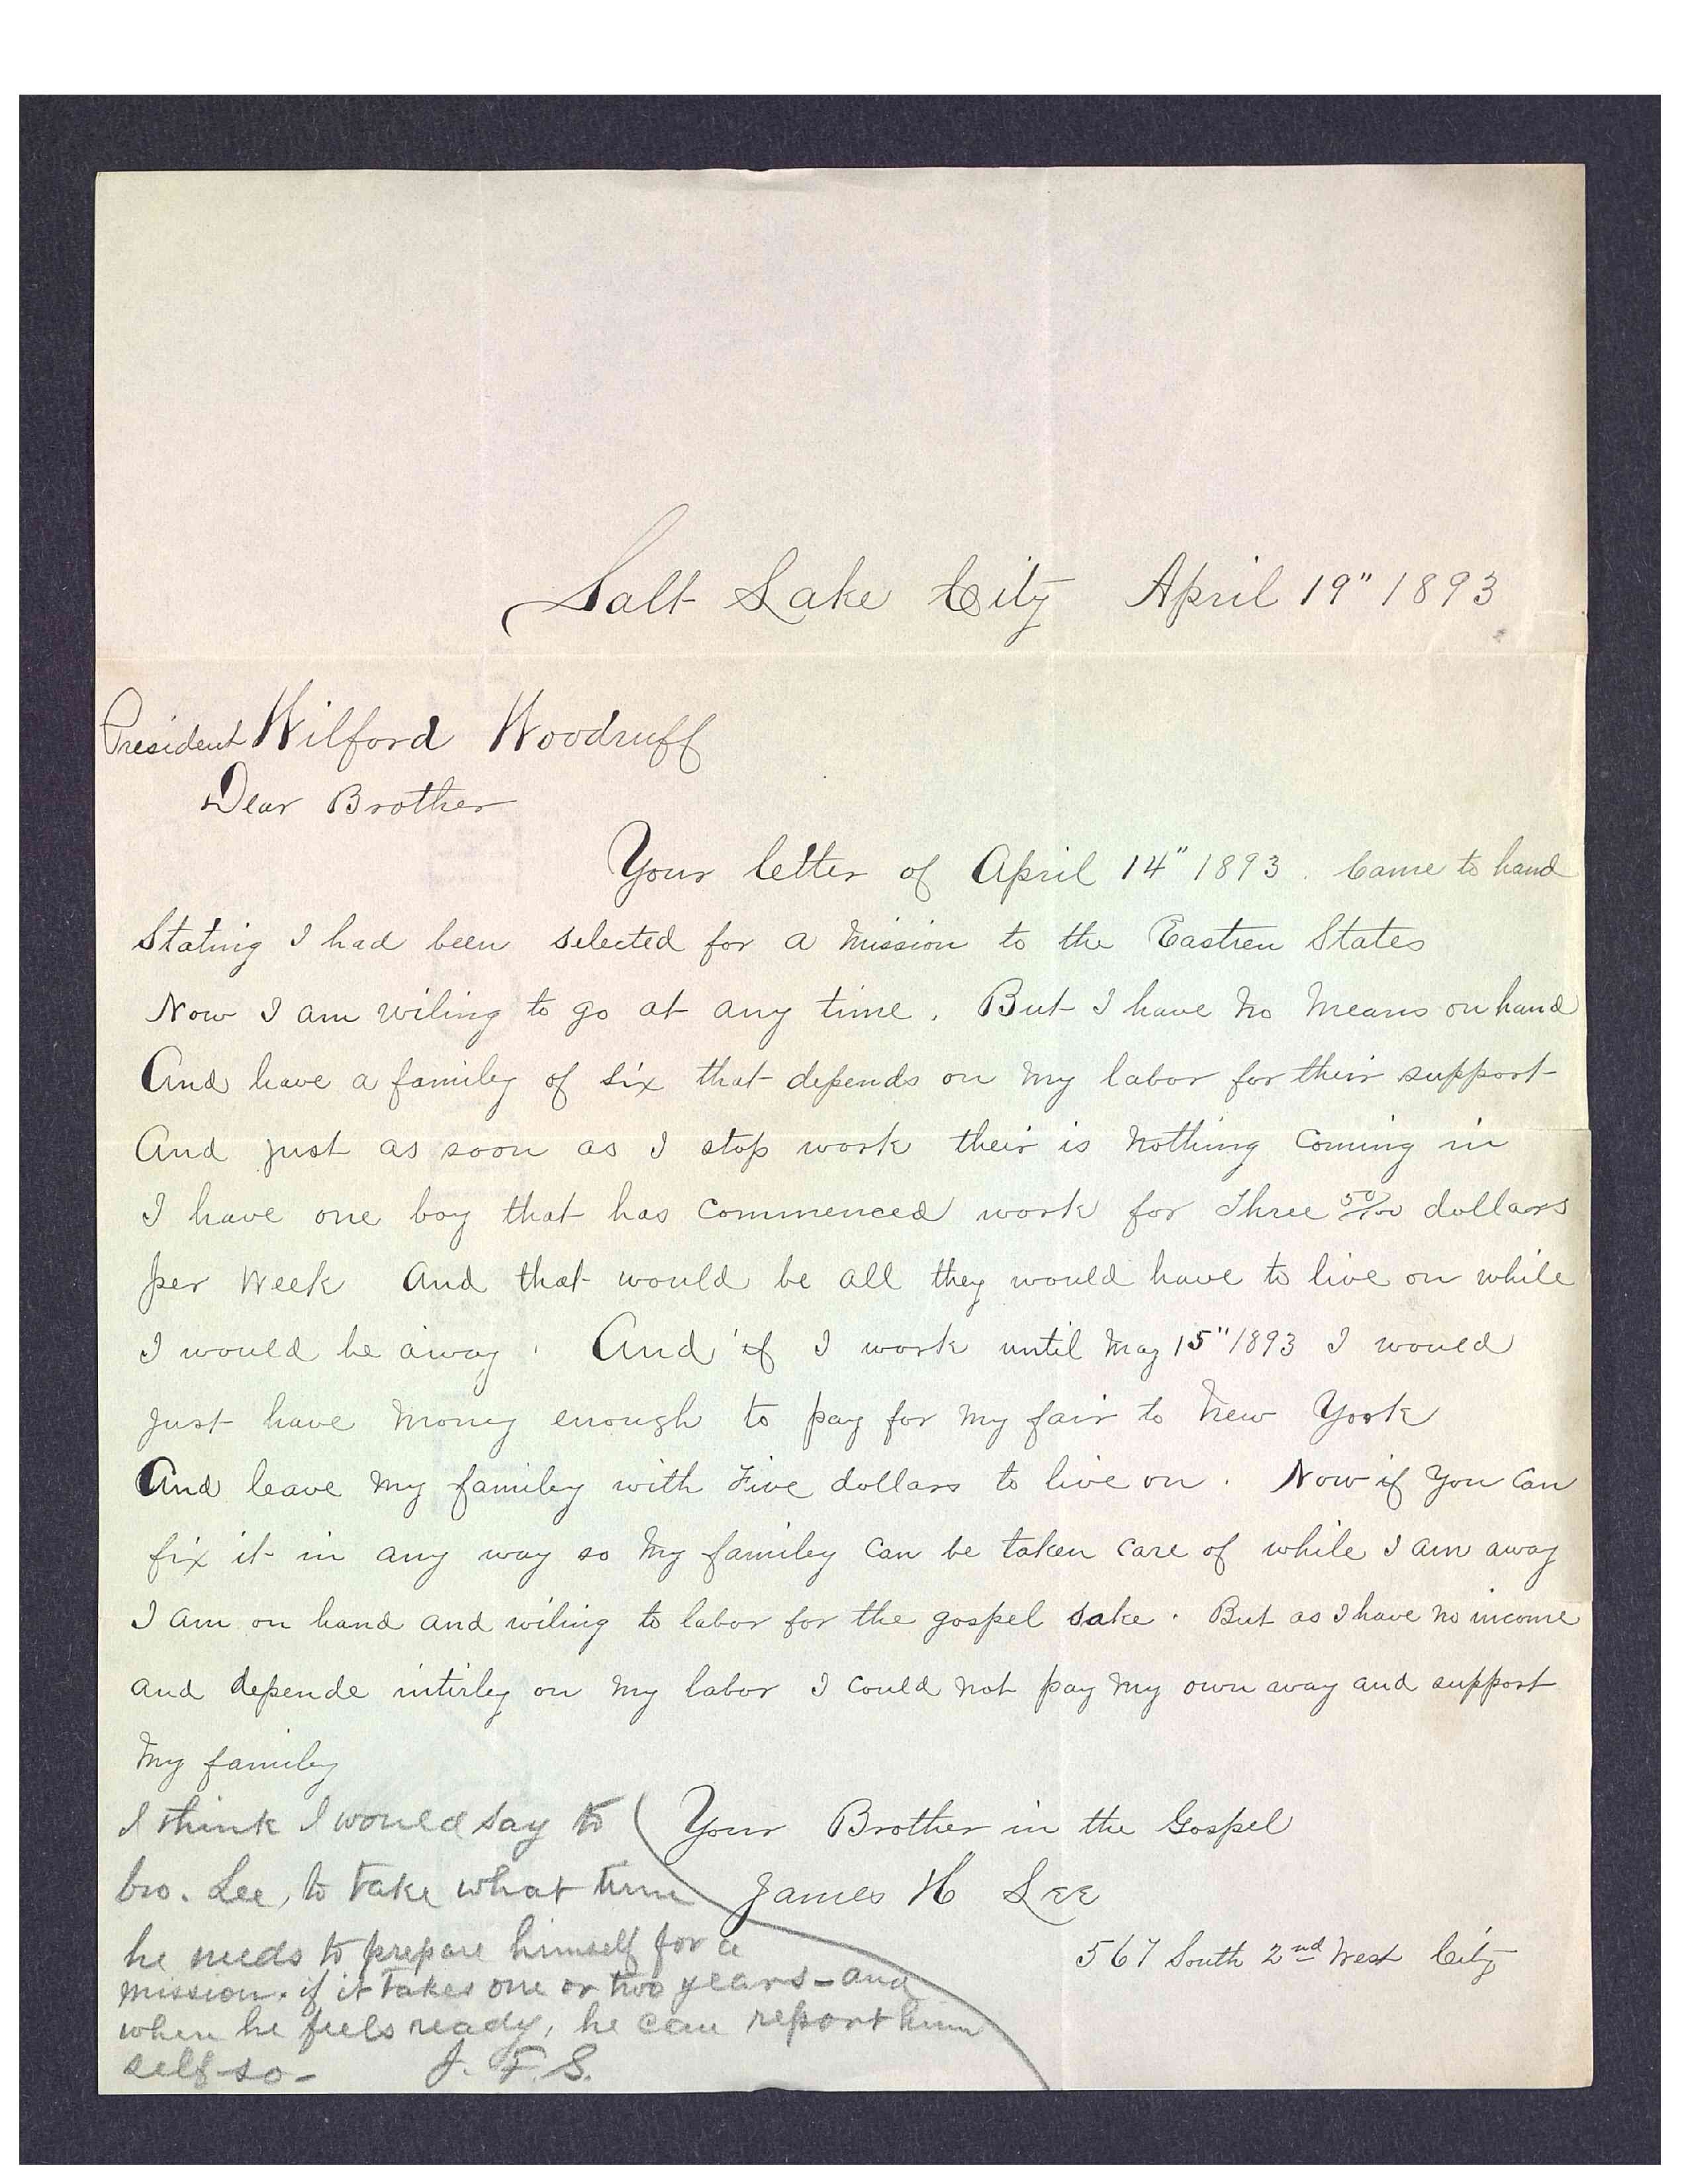 Salt Lake City April 19" 1893
President Wilford Woodruff
Dear Brother
Your letter of April 14" 1893. Came to hand
Stating I had been selected for a Mission to the Eastren States
Now I am wiling to go at any time. But I have No Means on hand
And have a familey of six that depends on My labor for their support
And just as soon as I stop work their is Nothing Coming in
I have one boy that has Commenced work for Three 50/100 dollars
per Week And that would be all they would have to live on while
I would be away. And if I work until May 15" 1893 I would
Just have Money enough to pay for My fair to New York
And leave My familey with Five dollars to live on. Now if You Can
fix it in any way so My familey Can be taken Care of while I am away
I am on hand and wiling to labor for the gospel sake. But as I have No income
and depende intirley on My labor I Could Not pay My own way and support
My familey
Your Brother in the Gospel
James H Lee
567 South 2nd West City
I think I would say to
bro. Lee, to take what time
he needs to prepare himself for a
mission. if it takes one or two years - and
when he feels ready, he can report him
self so -   J. F. S.